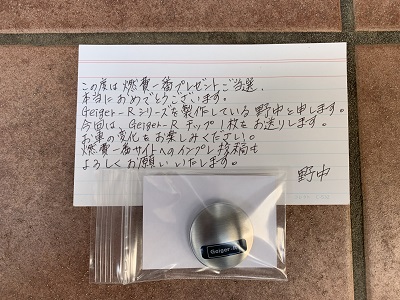 この度は燃費一番プレゼントご当選、
本当におめでとうございます。
Geiger-Rシリーズを製作している野中と申します。
今回は、Geiger-Rチップ1枚をお送りします。
お車の変化をお楽しみください。
燃費一番サイトへのインプレ投稿も
よろしくお願いいたします。
野中
Geiger